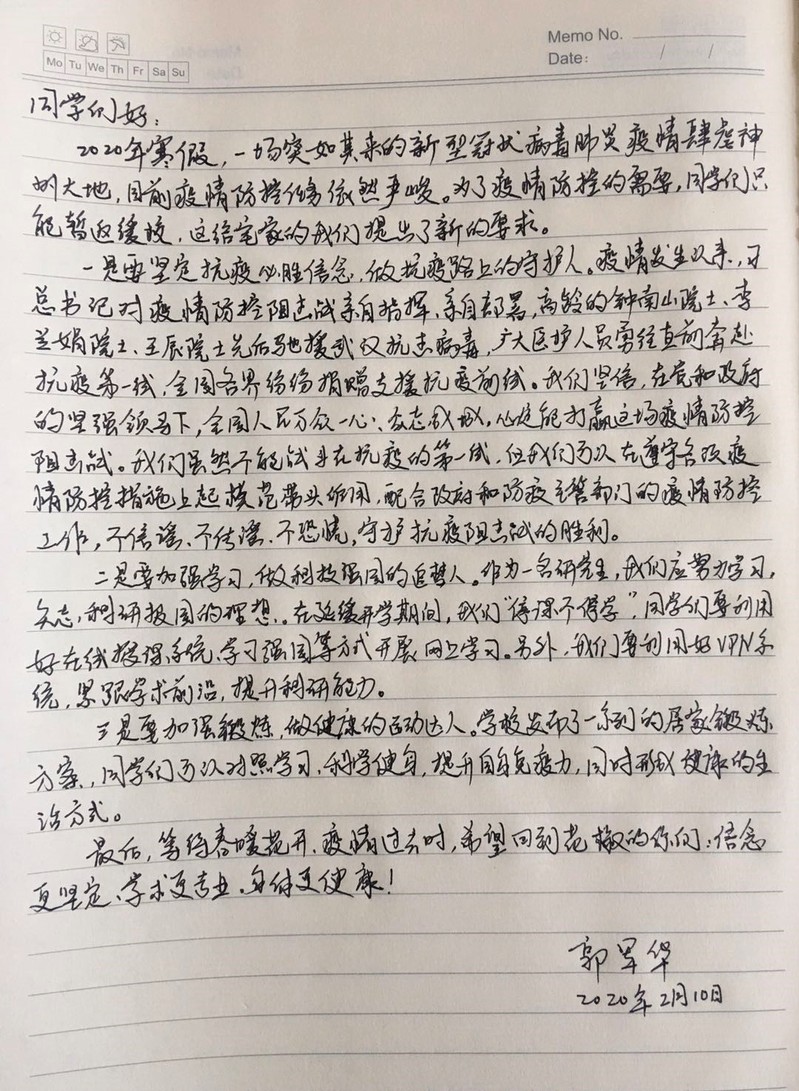 Memo No.
Date: / /
Mo Tu We Th Fr Sa Su
同学们好：
2020年寒假，一场突如其来的新型冠状病毒肺炎疫情肆虐神
州大地，目前疫情防控任务依然严峻。为了疫情防控的需要，同学们只
能暂返缓校，这给宅家的我们提出了新的要求。
一是要坚定抗疫必胜信念，做抗疫路上的守护人。疫情发生以来，习
总书记对疫情防控阻击战亲自指挥、亲自部署，高龄的钟南山院士、李
兰娟院士、王辰院士先后驰援武汉抗击病毒，广大医护人员勇往直前奔赴
抗疫第一线，全国各界纷纷捐赠支援抗疫前线。我们坚信，在党和政府
的坚强领导下，全国人民万众一心、众志成城，必定能打赢这场疫情防控
阻击战。我们虽然不能战斗在抗疫的第一线，但我们可以在遵守各项疫
情防控措施上起模范带头作用，配合政府和防疫主管部门的疫情防控
工作，不信谣、不传谣、不恐慌，守护抗疫阻击战的胜利。
二是要加强学习，做科技强国的追梦人。作为一名研究生，我们应努力学习，
矢志科研报国的理想。在延缓开学期间，我们“停课不停学”，同学们要利用
好在线授课系统、学习强国等方式开展网上学习。另外，我们要利用好VPN系
统，紧跟学术前沿，提升科研能力。
三是要加强锻炼，做健康的运动达人。学校发布了一系列的居家锻炼
方案，同学们可以对照学习，科学健身，提升自身免疫力，同时形成健康的生
活方式。
最后，等待春暖花开、疫情过去时，希望回到花椒的你们：信念
更坚定、学术更专业、身体更健康！
郭军华
2020年2月10日